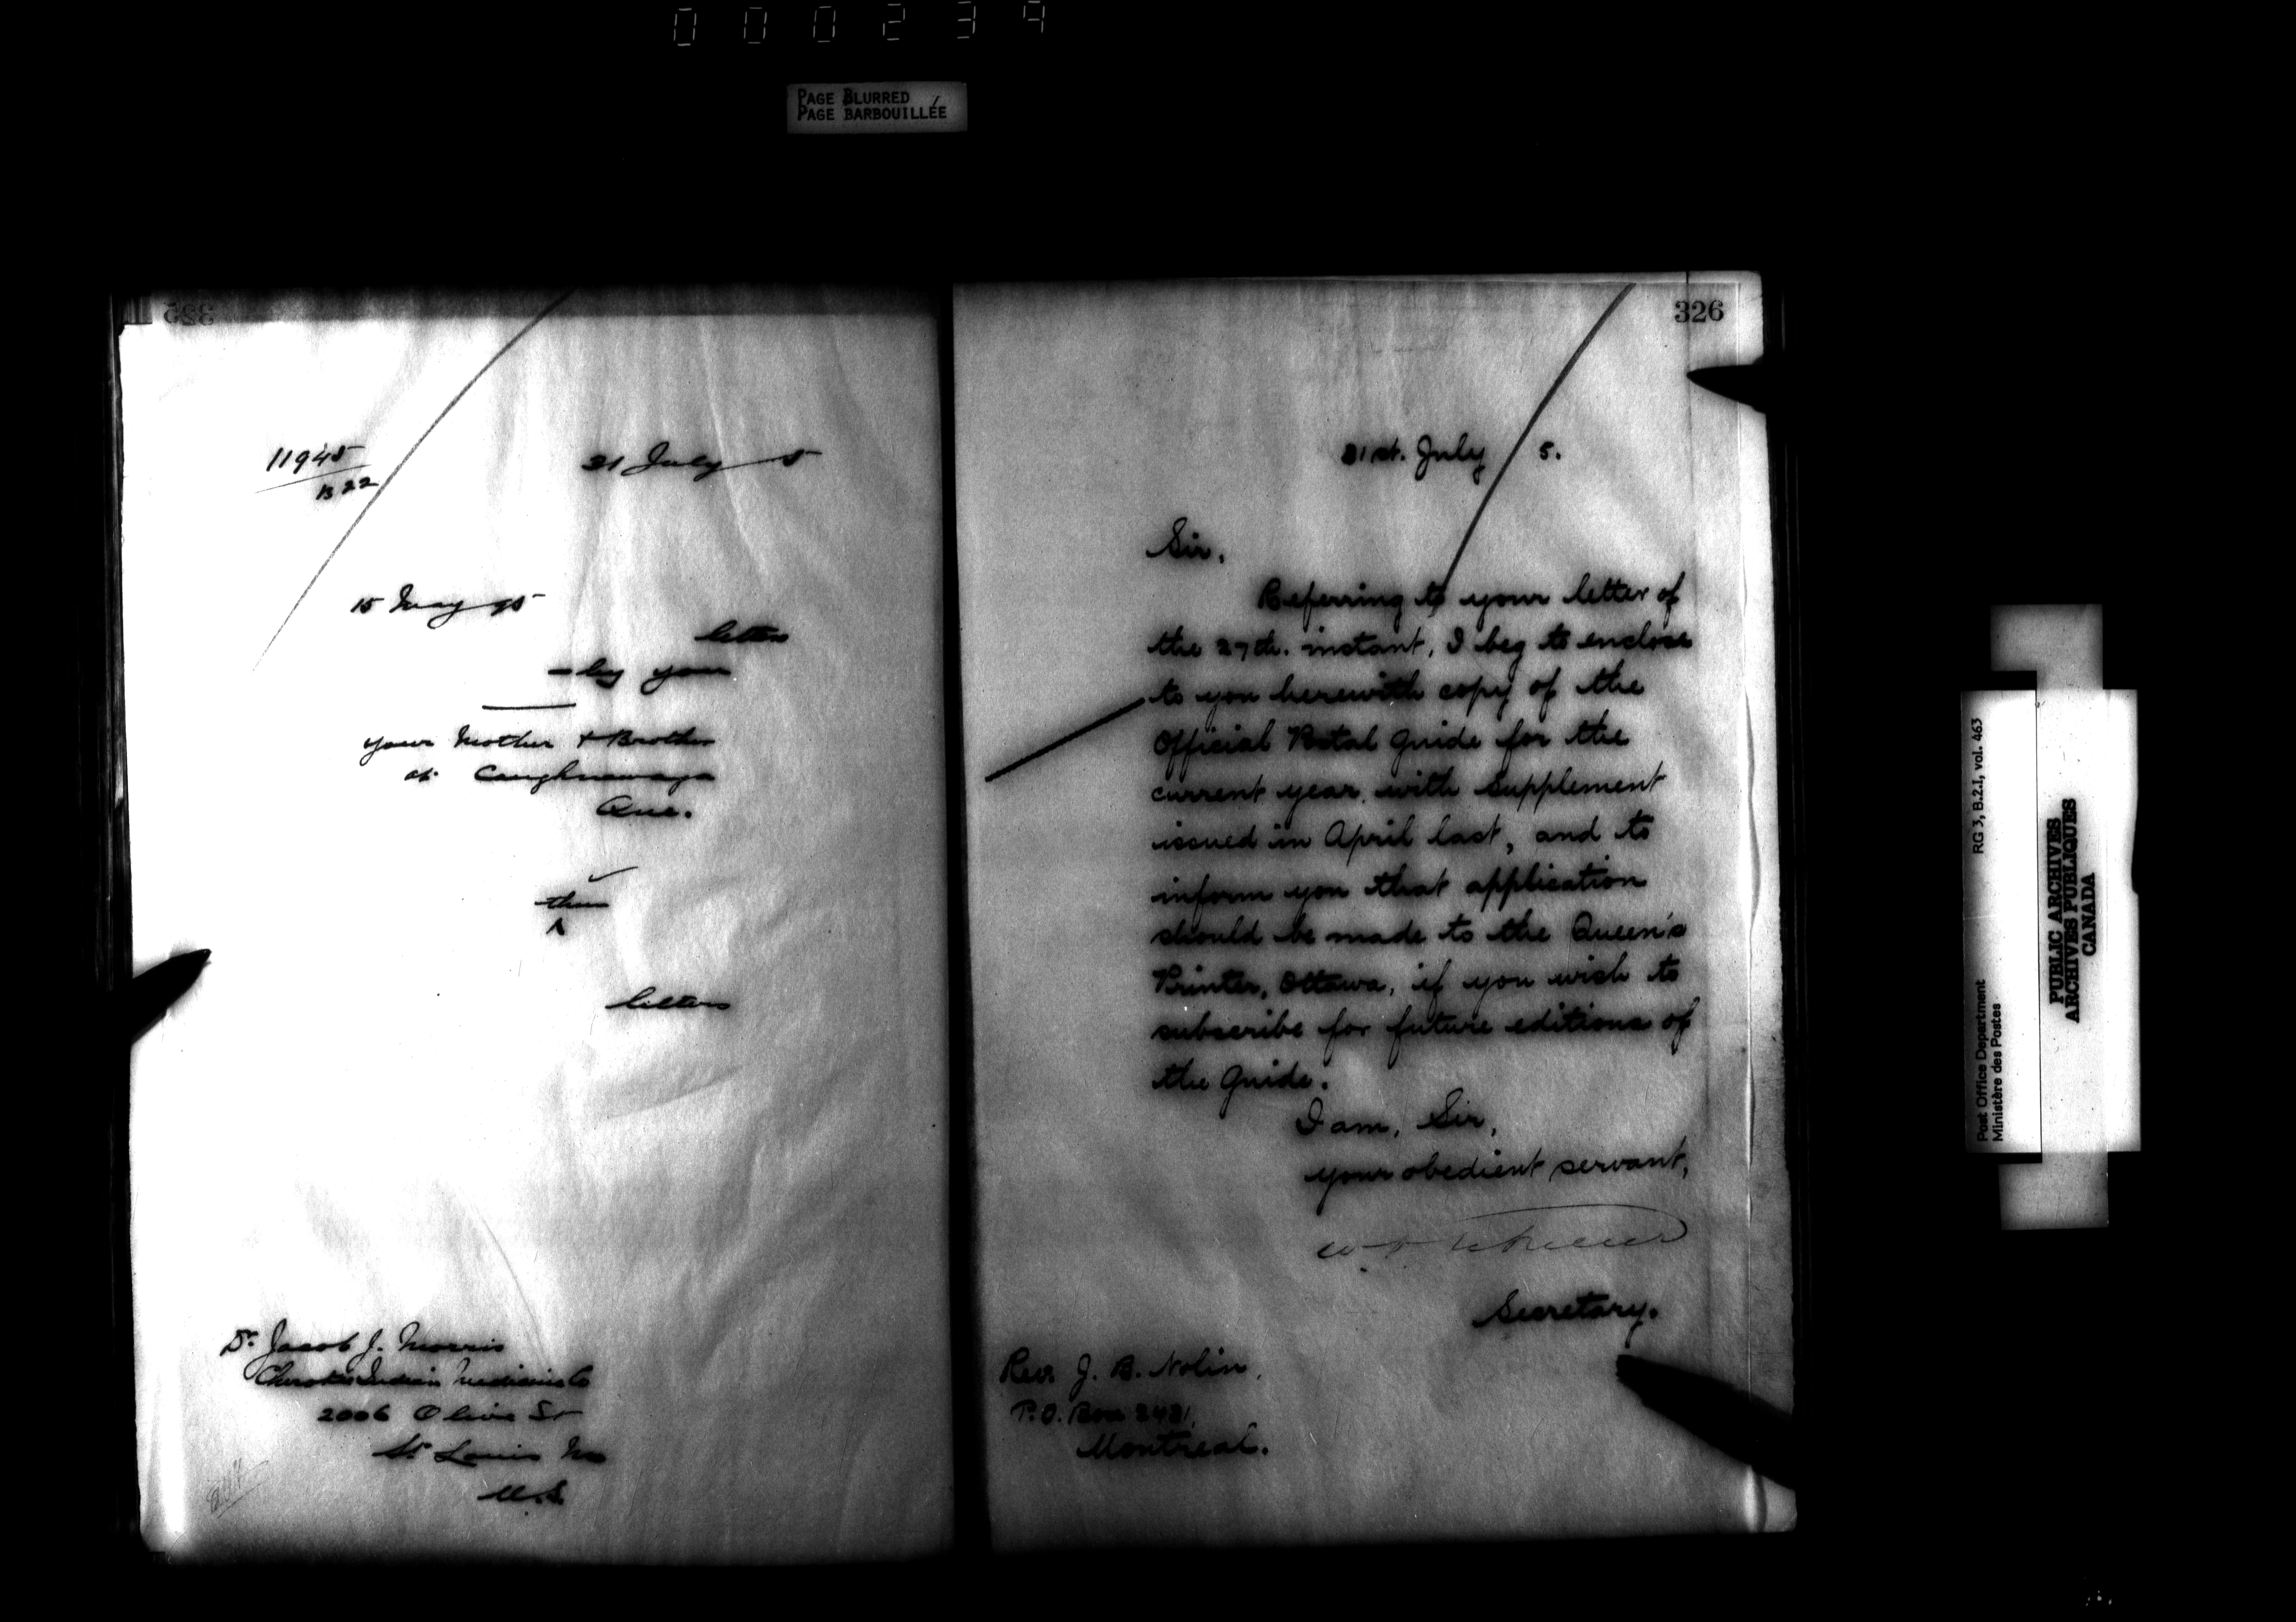 000234
PAGE BLURRED
PAGE BARBOUILLÉE
11945
B 22
21 July 5
15 May 95
letters
by your
your Mother & Brother
at Caughnawaga
Que.
thus
letters
Dr. Jacob J. Morris
Cherokee Indian Medicine Co
2006 Olive St
St Louis Mo
U.S.
326
31st. July 5.
Sir,
Referring to your letter of
the 27th. instant, I beg to enclose
to you herewith copy of the
Official Postal Guide for the
current year, with Supplement
issued in April last, and to
inform you that application
should be made to the Queen's
Printer, Ottawa, if you wish to
subscribe for future editions of
the Guide.
I am, Sir,
your obedient servant,
Secretary.
Rev. J. B. Nolin,
P.O. Box 2431,
Montreal.
RG 3, B.2.I, vol. 463
Post Office Department
Ministère des Postes
PUBLIC ARCHIVES
ARCHIVES PUBLIQUES
CANADA